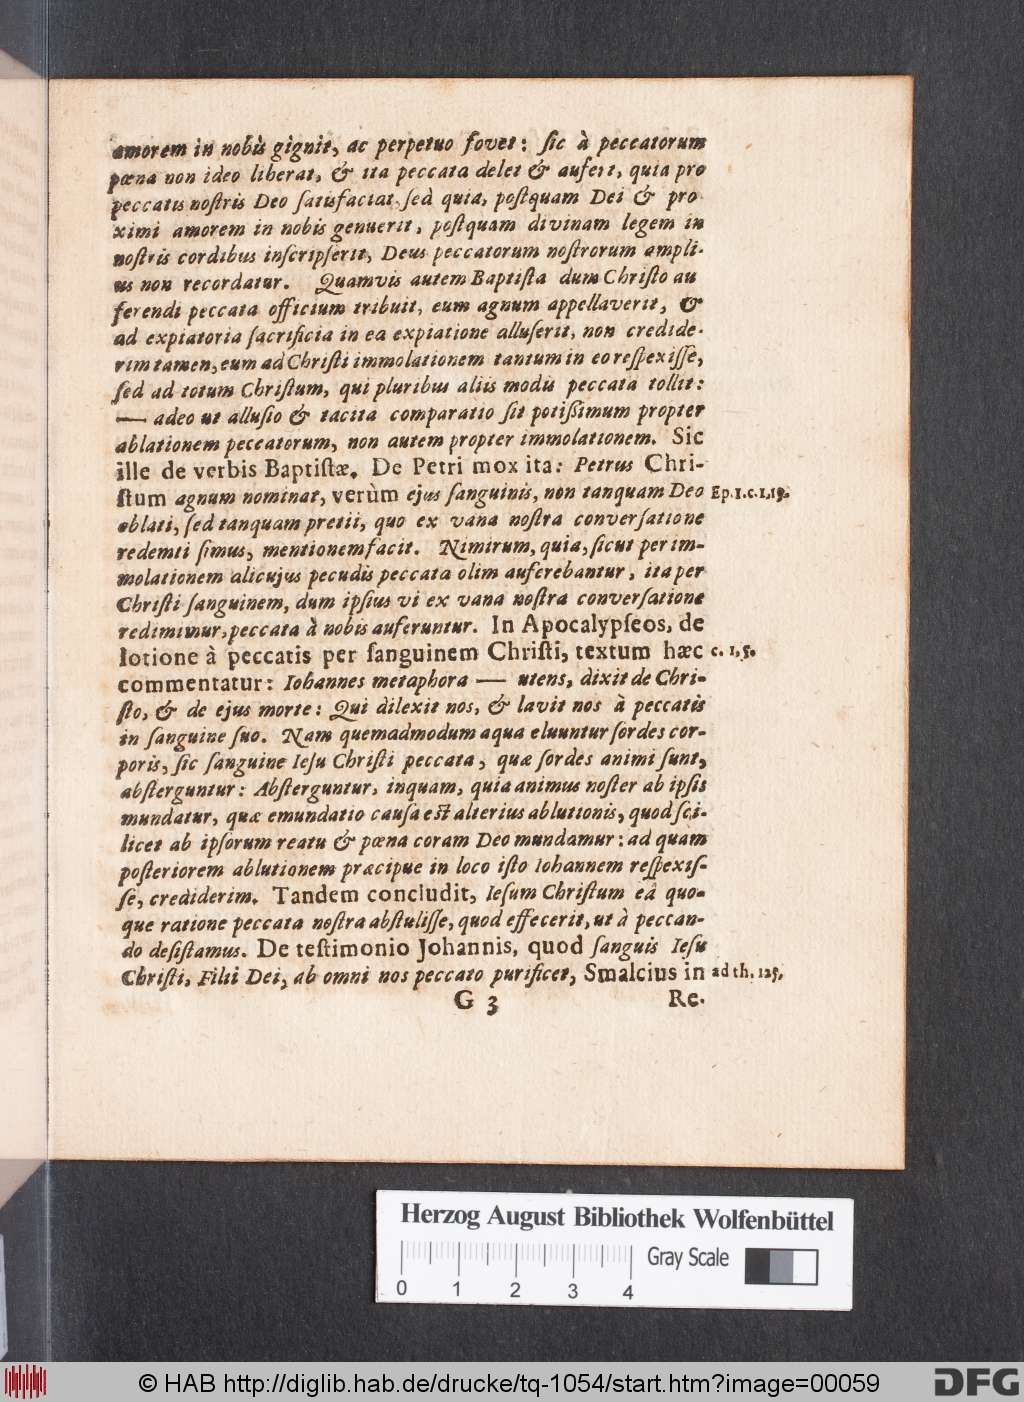 amorem in nobis gignit, ac perpetuo fovet: ſic à peccatorum
pœna non ideo liberat, & ita peccata delet & aufert, quia pro
peccatis noſtris Deo ſatisfaciat ſed quia, poſtquam Dei & pro
ximi amorem in nobis genuerit, poſtquam divinam legem in
noſtris cordibus inſcripſerit, Deus peccatorum noſtrorum ampli-
us non recordatur. Quamvis autem Baptiſta dum Chriſto au
ferendi peccata officium tribuit, eum agnum appellaverit, &
ad expiatoria ſacrificia in ea expiatione alluſerit, non credide-
rim tamen, eum ad Chriſti immolationem tantum in eo reſpexiſſe,
ſed ad totum Chriſtum, qui pluribus aliis modis peccata tollit:
— adeo ut alluſio & tacita comparatio ſit potißimum propter
ablationem peccatorum, non autem propter immolationem. Sic
ille de verbis Baptiſtæ. De Petri mox ita: Petrus Chri-
ſtum agnum nominat, verùm ejus ſanguinis, non tanquam Deo Ep. 1. c. 1, 19.
oblati, ſed tanquam pretii, quo ex vana noſtra converſatione
redemti ſimus, mentionem facit. Nimirum, quia, ſicut per im-
molationem alicujus pecudis peccata olim auferebantur, ita per
Chriſti ſanguinem, dum ipſius vi ex vana noſtra converſatione
redimimur, peccata à nobis auferuntur. In Apocalypſeos, de
lotione à peccatis per ſanguinem Chriſti, textum hæc c. 1, 5.
commentatur: Iohannes metaphora — utens, dixit de Chri-
ſto, & de ejus morte: Qui dilexit nos, & lavit nos à peccatis
in ſanguine ſuo. Nam quemadmodum aqua eluuntur ſordes cor-
poris, ſic ſanguine Ieſu Chriſti peccata, quæ ſordes animi ſunt,
abſterguntur: Abſterguntur, inquam, quia animus noſter ab ipſis
mundatur, quæ emundatio cauſa eſt alterius ablutionis, quod ſci-
licet ab ipſorum reatu & pœna coram Deo mundamur: ad quam
poſteriorem ablutionem præcipue in loco iſto Iohannem reſpexiſ-
ſe, crediderim. Tandem concludit, Ieſum Chriſtum eâ quo-
que ratione peccata noſtra abſtuliſſe, quod effecerit, ut à peccan-
do deſiſtamus. De teſtimonio Johannis, quod ſanguis Ieſu
Chriſti, Filii Dei, ab omni nos peccato purificet, Smalcius in ad th. 125.
G 3 Re.
Herzog August Bibliothek Wolfenbüttel
Gray Scale
0 1 2 3 4
© HAB http://diglib.hab.de/drucke/tq-1054/start.htm?image=00059
DFG